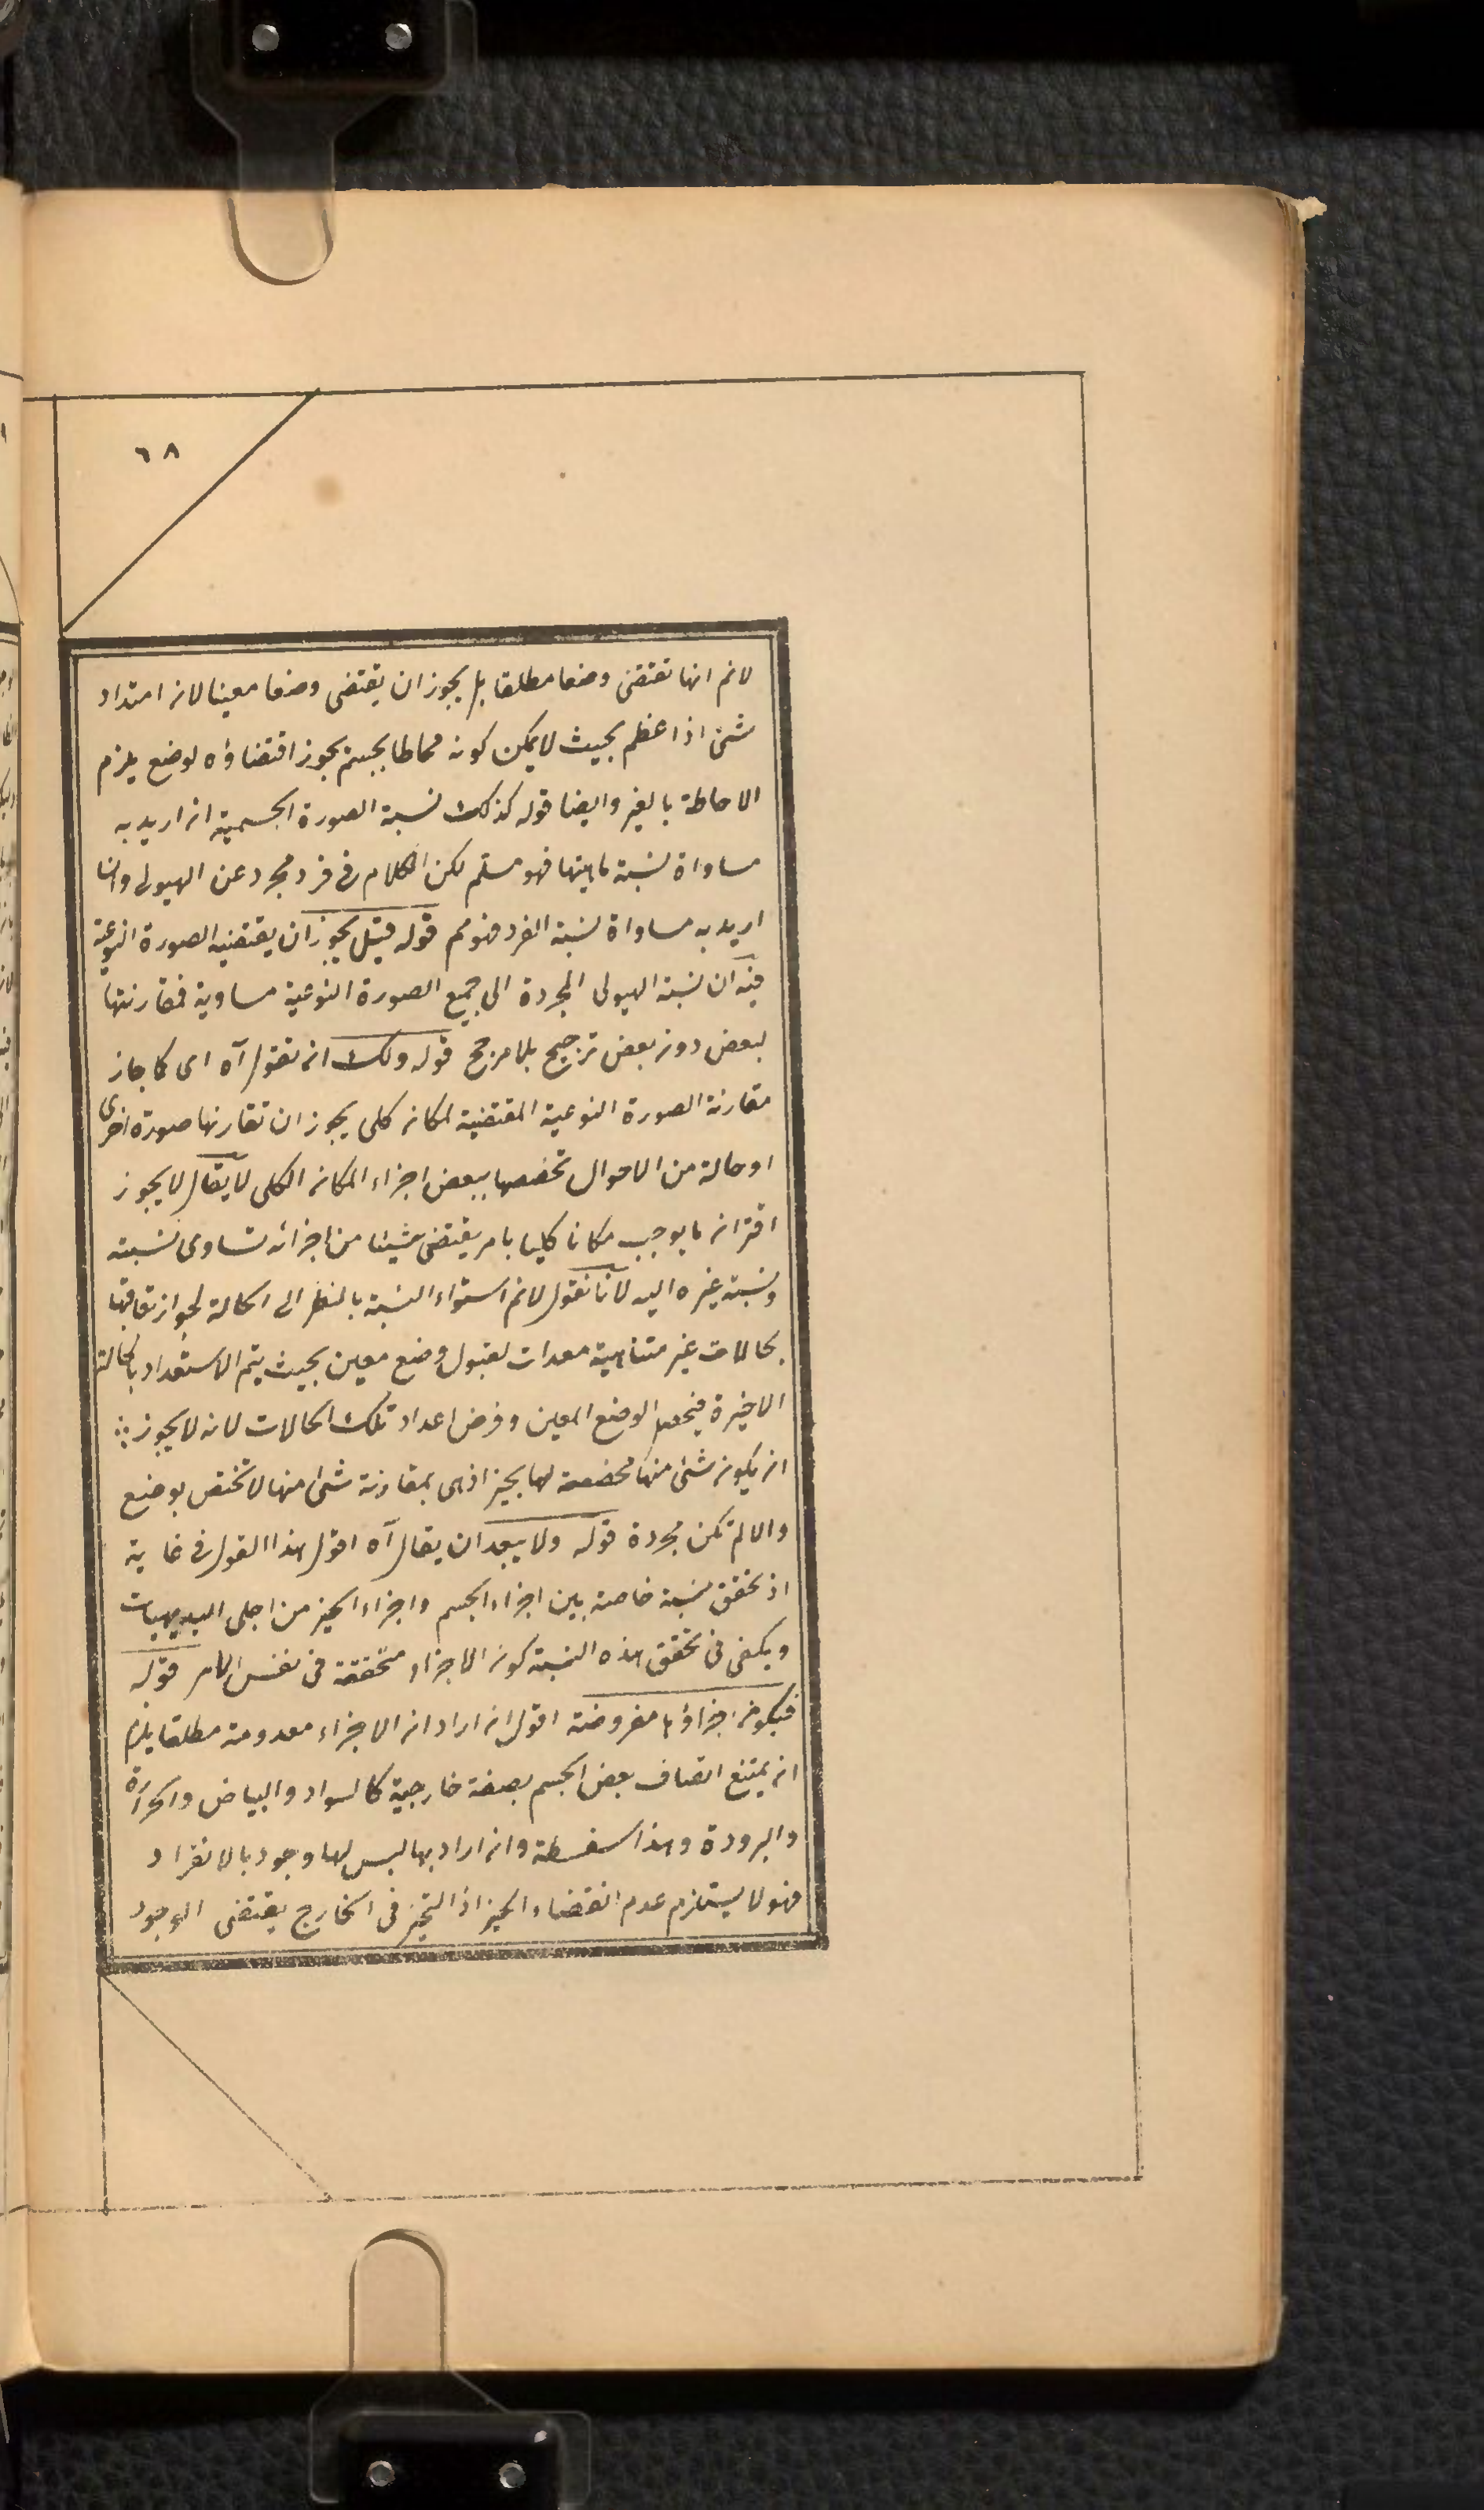 ٦٨
لانم انها تقتضى وضعا مطلقا بل يجوز ان يقتضى وضعا معينا لان امتداد
شئ اذا عظم بحيث لا يمكن كونه محاطا بجسم يجوز اقتضاؤه لوضع يلزم
الاحاطة بالغير وايضا قوله كذلك نسبة الصورة الجسمية ان اريد به
مساواة نسبة ماهيتها فهو مسلم لكن الكلام فى فرد مجرد عن الهيولى وان
اريد به مساواة نسبة الفرد فهو مم قوله قيل يجوز ان يقتضيه الصورة النوعية
فيه ان نسبة الهيولى المجردة الى جميع الصورة النوعية مساوية فمقارنتها
لبعض دون بعض ترجيح بلا مرجح قوله ولك ان تقول آه اى كما جاز
مقارنة الصورة النوعية المقتضية لمكان كلى يجوز ان تقارنها صورة اخرى
او حالة من الاحوال تخصصها ببعض اجزاء المكان الكلى لا يقال لا يجوز
اقتران ما يوجب مكانا كليا بامر يقتضى شيئا من اجزائه تساوى نسبته
ونسبة غيره اليه لانا نقول لانم استواء النسبة بالنظر الى الحالة لجواز تعاقبها
بحالات غير متناهية معدات لقبول وضع معين بحيث يتم الاستعداد بالحالة
الاخيرة فيحصل الوضع المعين وفرض اعداد تلك الحالات لانه لا يجوز
ان يكون شئ منها مخصصة لها بحيز اذ هى بمقارنة شئ منها لا تختص بوضع
والا لم تكن مجردة قوله ولا يبعد ان يقال آه اقول هذا القول فى غاية
اذ تحقق نسبة خاصة بين اجزاء الجسم واجزاء الحيز من اجلى البديهيات
ويكفى فى تحقق هذه النسبة كون الاجزاء متحققة فى نفس الامر قوله
فيكون اجزاؤها مفروضة اقول ان اراد ان الاجزاء معدومة مطلقا يلزم
ان يمتنع اتصاف بعض الجسم بصفة خارجية كالسواد والبياض والحرارة
والبرودة وهذا سفسطة وان اراد بها ليس لها وجود بالانفراد
فهو لا يستلزم عدم اقتضاء الحيز اذ التحيز فى الخارج يقتضى الوجود